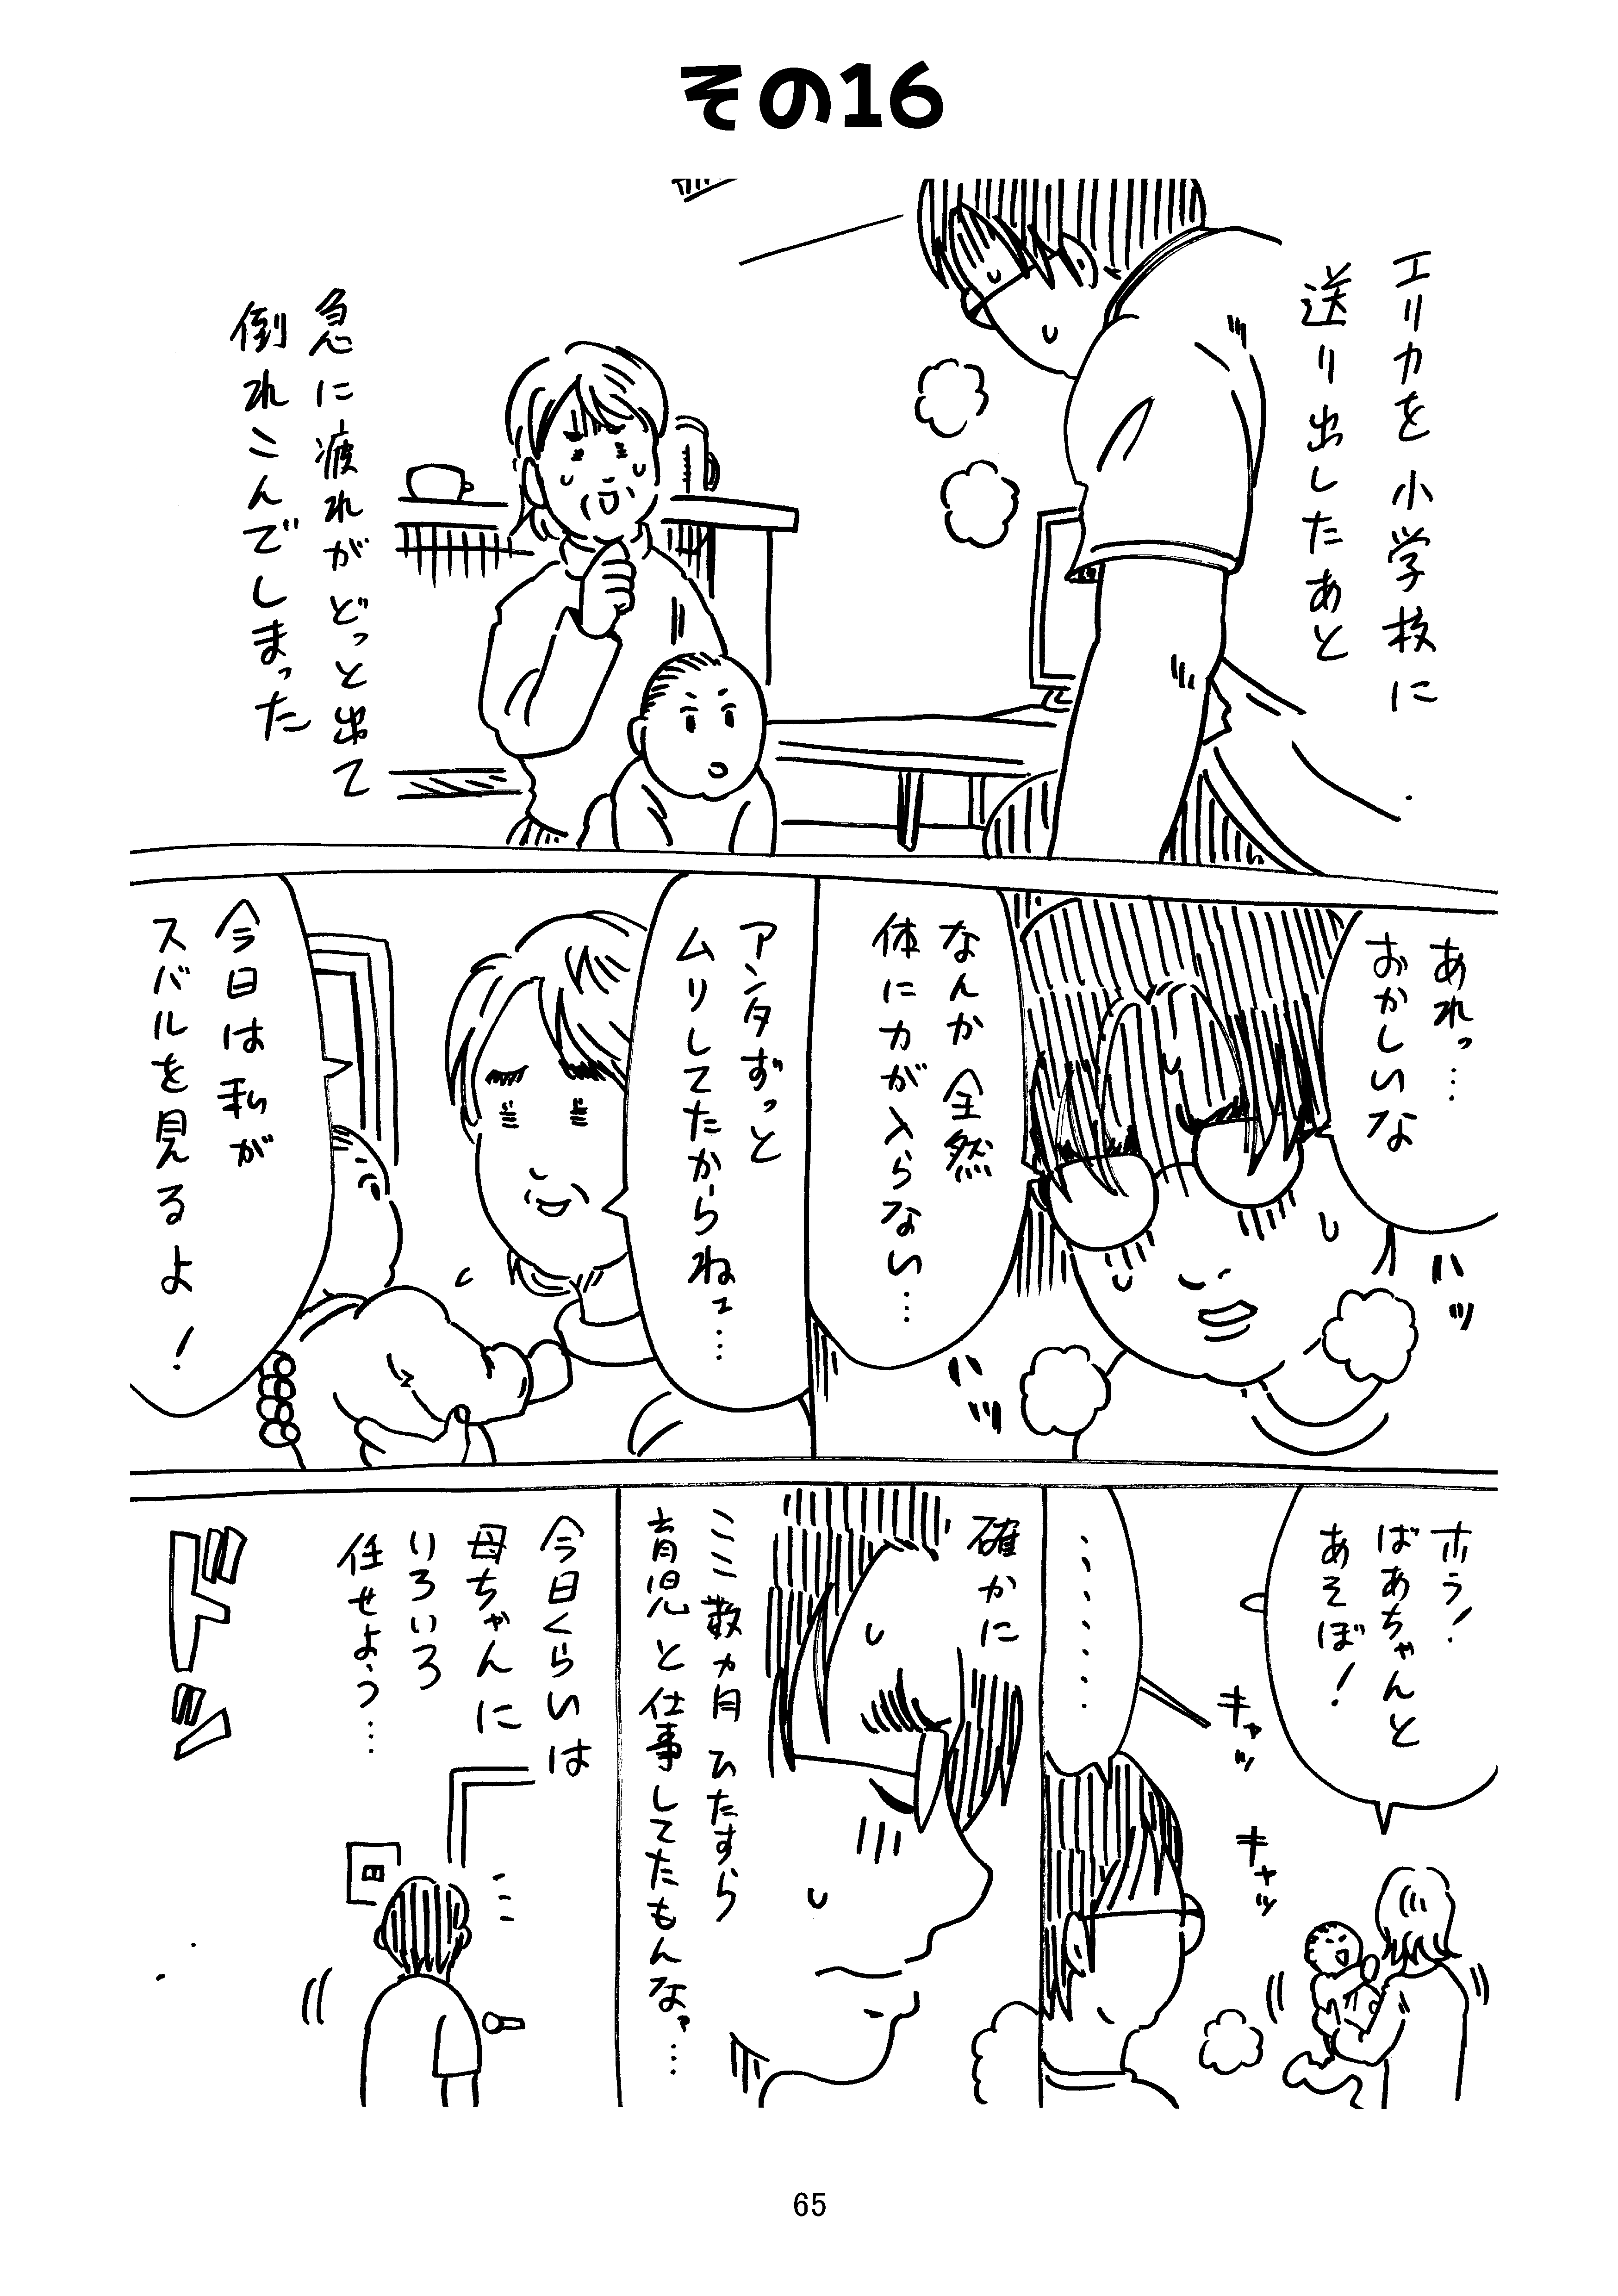 その16
エリカを小学校に
送り出したあと
急に疲れがどっと出て
倒れこんでしまった
あれっ…
おかしいな
なんか全然
体に力が入らない…
ハッ
ハッ
アンタずっと
ムリしてたからねェ…
今日は私が
スバルを見るよ!
ホラ!
ばあちゃんと
あそぼ!
キャッ
キャッ
……
確かに
ここ数ヵ月ひたすら
育児と仕事してたもんなァ…
今日くらいは
母ちゃんに
いろいろ
任せよう…
ドッ
65